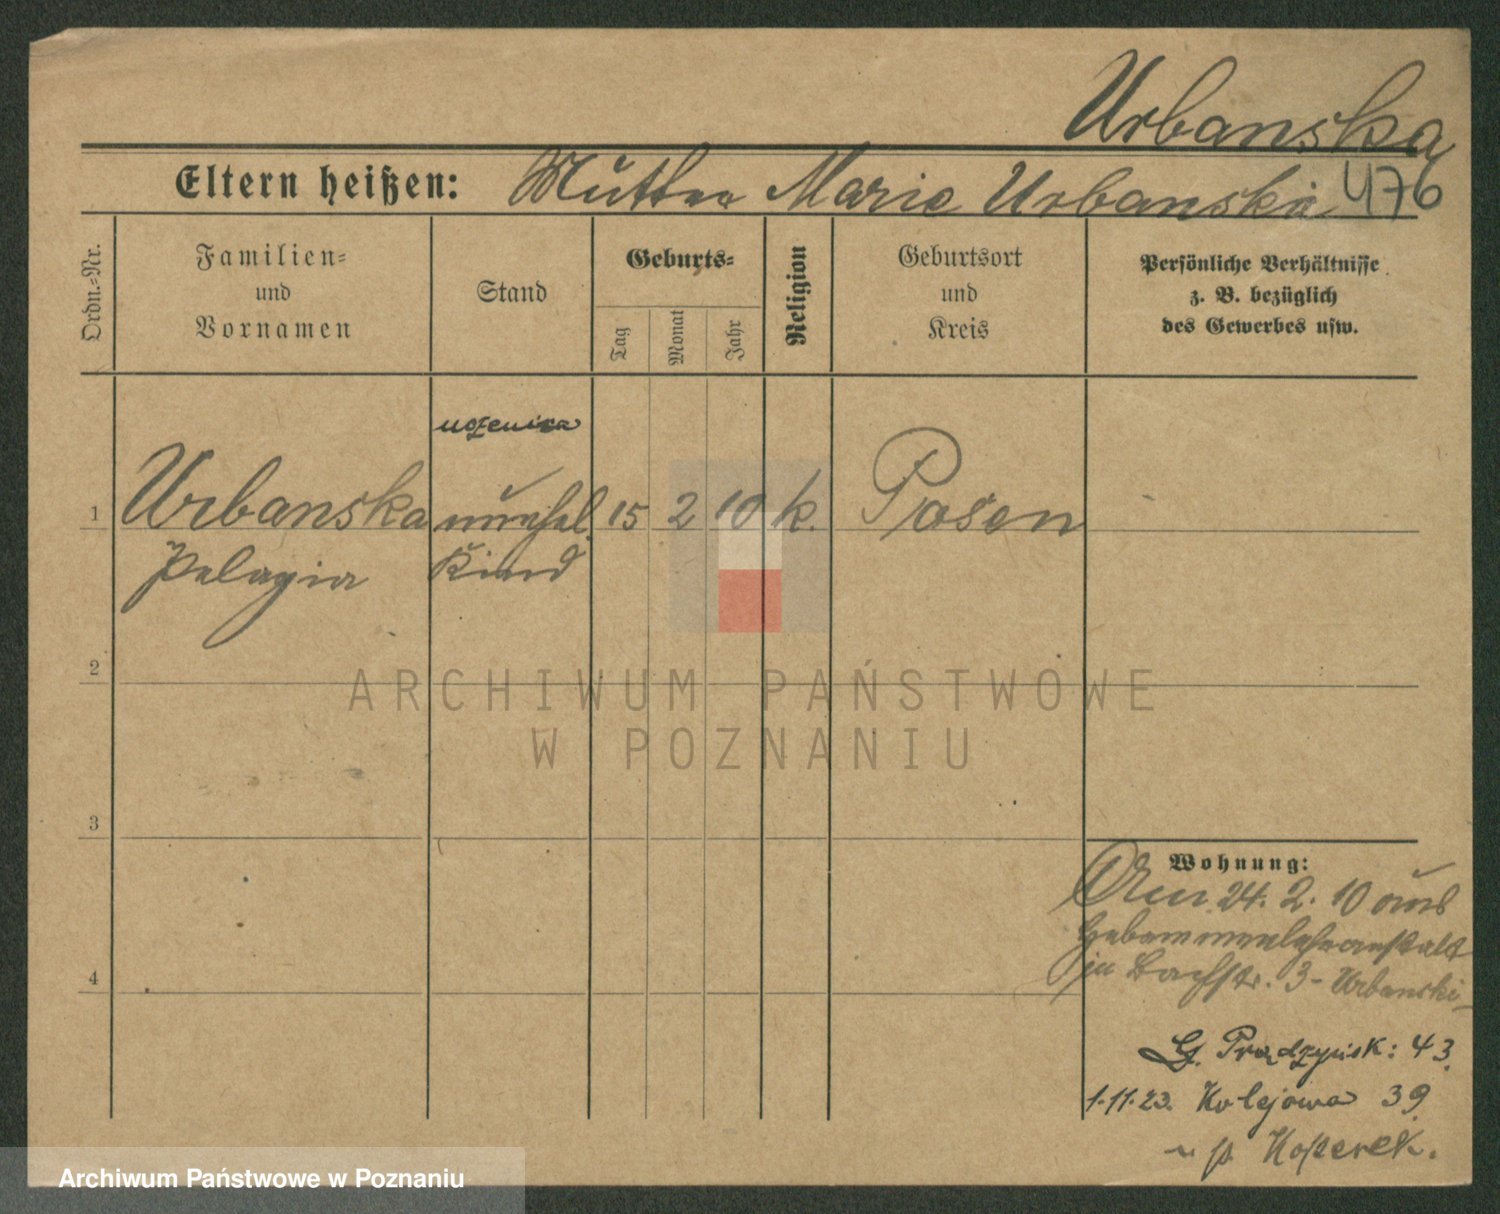 Urbanska
Eltern heißen: Mutter Marie Urbanska 476
Ordn.-Nr.
Familien-
und
Vornamen
Stand
Geburts-
Tag
Monat
Jahr
Religion
Geburtsort
und
Kreis
Persönliche Verhältnisse
z. B. bezüglich
des Gewerbes usw.
uczenica
1 Urbanska unehel. 15 2 10 k. Posen
Pelagia Kind
2
3
4
Wohnung:
Am 24. 2. 10 aus
Hebammenlehranstalt
zu Bachstr. 3 - Urbanski
G. Prądzyńsk: 43.
1.11.23. Kolejowa 39
u p.
ARCHIWUM PAŃSTWOWE
W POZNANIU
Archiwum Państwowe w Poznaniu